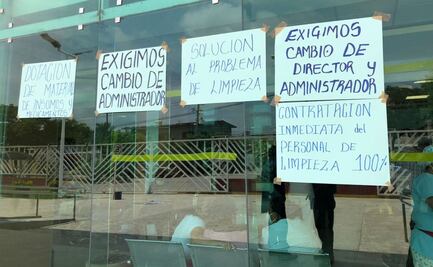 DOTACION
DE MATERIAL
DE INSUMOS Y
MEDICAMENTOS
EXIGIMOS
CAMBIO DE
ADMINISTRADOR
SOLUCION
AL PROBLEMA
DE LIMPIEZA
EXIGIMOS
CAMBIO DE
DIRECTOR y
ADMINISTRADOR
CONTRATACION
INMEDIATA del
PERSONAL DE
LIMPIEZA 100%